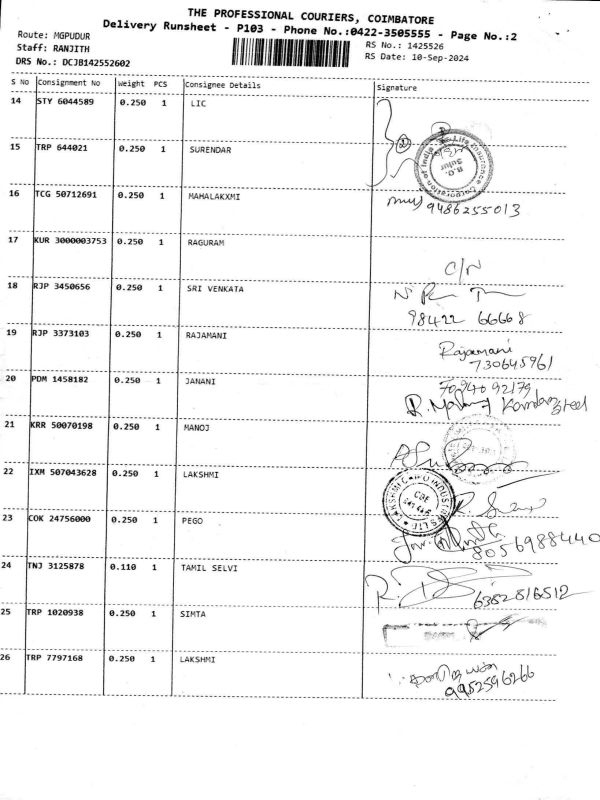 THE PROFESSIONAL COURIERS, COIMBATORE
Delivery Runsheet - P103 - Phone No.:0422-3505555 - Page No.:2
Route: MGPUDUR
Staff: RANJITH
DRS No.: DCJB142552602
RS No.: 1425526
RS Date: 10-Sep-2024
S No Consignment No Weight PCS Consignee Details Signature
14 STY 6044589 0.250 1 LIC
Life Insurance Corporation of India
B.O.
Sulur
15 TRP 644021 0.250 1 SURENDAR
16 TCG 50712691 0.250 1 MAHALAKXMI
9486255013
17 KUR 3000003753 0.250 1 RAGURAM
C/N
18 RJP 3450656 0.250 1 SRI VENKATA
98422 66668
19 RJP 3373103 0.250 1 RAJAMANI
Rajamani
730645961
20 PDM 1458182 0.250 1 JANANI
70940 92179
21 KRR 50070198 0.250 1 MANOJ
22 IXM 507043628 0.250 1 LAKSHMI
CBE
23 COK 24756000 0.250 1 PEGO
8056988440
24 TNJ 3125878 0.110 1 TAMIL SELVI
6382816512
25 TRP 1020938 0.250 1 SIMTA
26 TRP 7797168 0.250 1 LAKSHMI
9952596266